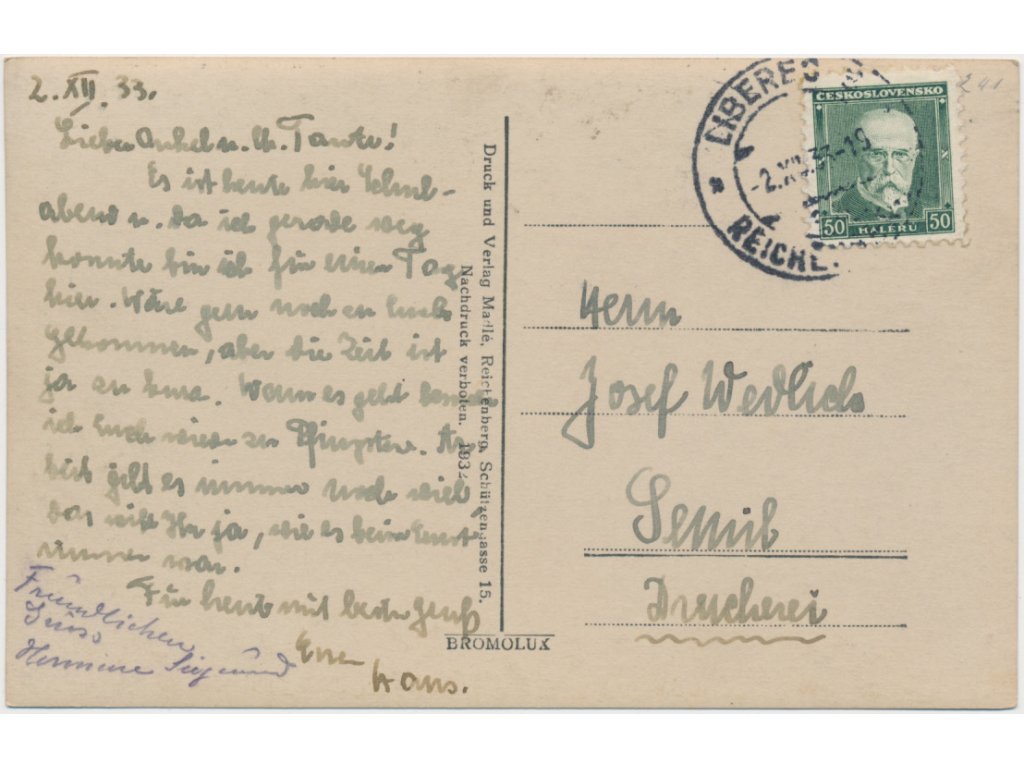 2. XII. 33.
Lieber Onkel u. lb. Tante!
Es ist heute hier
abend u. da ich gerade weg
konnte bin ich für einen Tag
hier. Wäre gern noch zu Euch
gekommen, aber die Zeit ist
ja zu kurz. Wenn es geht
ich Euch wieder zu Pfingsten. Ar-
beit gibt es immer noch viel,
das wißt Ihr ja, wie es beim
immer war.
Für heut mit besten Gruß
Euer
Hans.
Freundlichen
Gruss
Hermine Siegmund
Druck und Verlag Madlé, Reichenberg, Schützengasse 15.
Nachdruck verboten. 1932
BROMOLUX
LIBEREC
-2.XII.33-19
REICHE
ČESKOSLOVENSKO
50 HALÉŘŮ 50
241
Herrn
Josef Wedlich
Semil
Druckerei